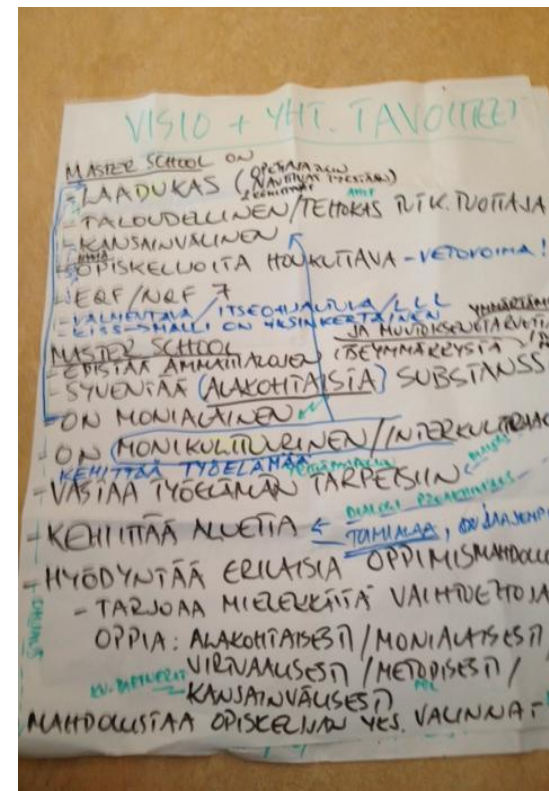 VISIO + YHT. TAVOITTEET
MASTER SCHOOL ON
- LAADUKAS (OPETTAJA
NAUTTIVAT
- TALOUDELLINEN/TEHOKAS TUTK. TUOTTAJA
- KANSAINVÄLINEN
- OPISKELIJOITA HOUKUTTAVA - VETOVOIMA!
- EQF/NQF 7
- VALMENTAVA/ITSEOHJAUTUVA/LLL
- KISS-SMALLI ON YKSINKERTAINEN
YMMÄRTÄM
JA MUUTOKSENTARVETTA
MASTER SCHOOL
- EDISTÄÄ AMMATTIALOJEN ITSEYMMÄRRYSTÄ
- SYVENTÄÄ (ALAKOHTAISTA) SUBSTANSS
- ON MONIALAINEN
- ON MONIKULTTUURINEN/INTERKULTTUURA
KEHITTÄÄ TYÖELÄMÄÄ
- VASTAA TYÖELÄMÄN TARPEISIIN
DIALOGI
- KEHITTÄÄ ALUETTA ←
TOIMIALAA,
- HYÖDYNTÄÄ ERILAISIA OPPIMISMAHDOLL
- TARJOAA MIELEKKÄITÄ VAIHTOEHTOJA
OPPIA: ALAKOHTAISESTI/MONIALAISESTI/
VIRTUAALISESTI/METODISESTI/
KV. PARTNERIT
KANSAINVÄLISESTI
MAHDOLLISTAA OPISKELIJAN YKS. VALINNAT